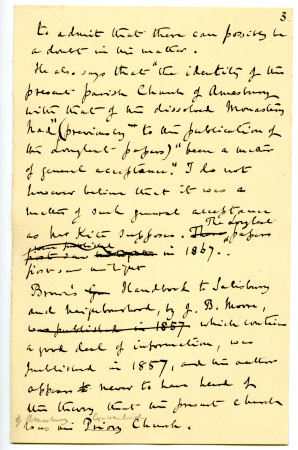 3
to admit that there can possibly be
a doubt in the matter.
He also says that "the identity of the
present parish Church of Amesbury
with that of the dissolved Monastery
had" (previously to the publication of
the douglas papers) "been a matter
of general acceptance". I do not
however believe that it was a
matter of such general acceptance
as Mr Kite supposes. These The douglas papers
were published
first saw in 1867.
first saw the light
Brown's Handbook to Salisbury
and neighbourhood, by J. B. Moore,
was published in 1857 which contains
a good deal of information, was
published in 1857, and the author
appears never to have heard of
the theory that the present church
of Amesbury conventual
was a Priory Church.